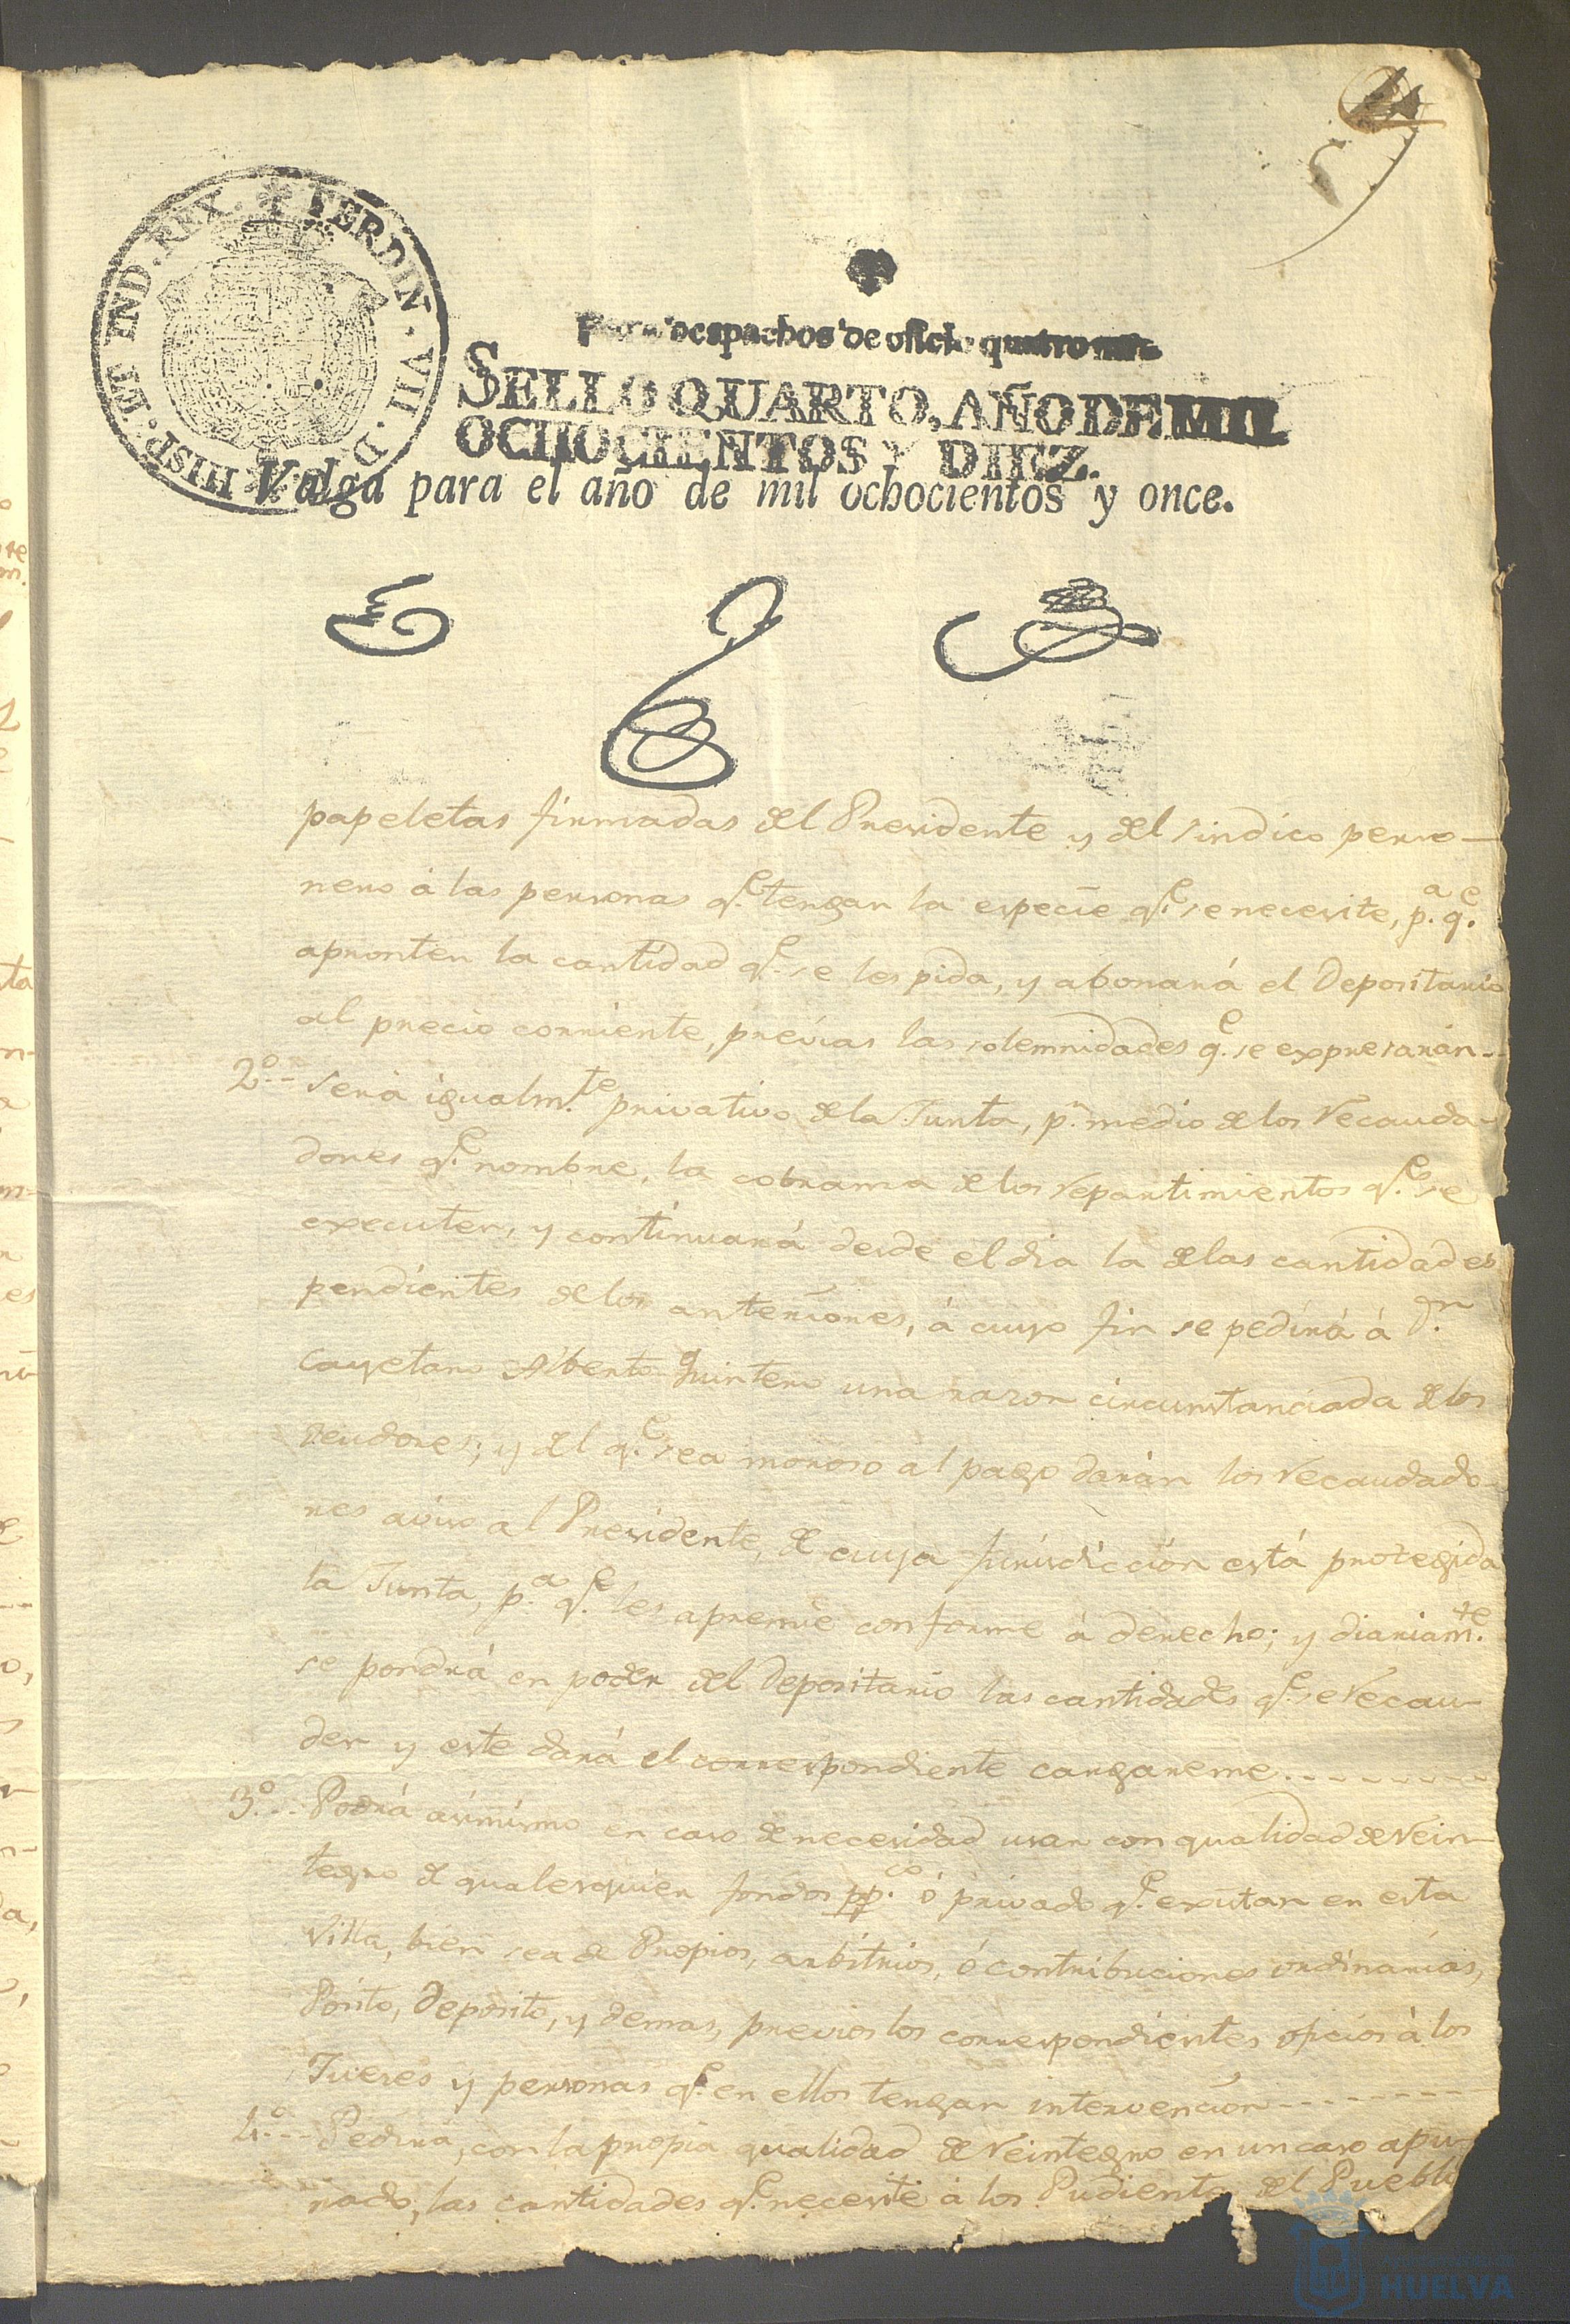 FERDIN. VII. D. G. HISP. ET IND. REX.
Para despachos de oficio quatro mrs.
SELLO QUARTO, AÑO DE MIL
OCHOCIENTOS Y DIEZ.
Valga para el año de mil ochocientos y once.
papeletas firmadas del Presidente y del sindico perso-
nero á las personas q.e tengan la especie q.e se necesite, p.a q.e
apronten la cantidad q.e se les pida, y abonará el Depositario
al precio corriente, prévias las solemnidades q.e se expresarán--
2.o-- Será igualm.te privativo de la Junta, p.r medio de los Recauda-
dores q.e nombre, la cobranza de los repartimientos q.e se
executen, y continuará desde el dia la de las cantidades
pendientes de los anteriores, á cuyo fin se pedirá á D.n
Cayetano Alberto Quintero una razon circunstanciada de los
deudores; y del q.e sea moroso al pago darán los recaudado-
res aviso al Presidente, de cuya Jurisdiccion está protegida
la Junta, p.a q.e les apremie conforme á derecho; y diariam.te
se pondrá en poder del Depositario las cantidades q.e se Recau-
den y este dará el correspondiente cargareme.--------
3.o-- Podrá asimismo en caso de necesidad usar con qualidad de Rein-
tegro de qualesquier fondos pp.co ó privado q.e existan en esta
Villa, bien sea de Propios, arbitrios, ó contribuciones ordinarias,
Pósito, Deposito, y demas, previos los correspondientes oficios á los
Jueces y personas q.e en ellos tengan intervencion-------
4.o-- Pedirá, con la propia qualidad de Reintegro en un caso apu-
rado, las cantidades q.e necesite á los Pudientes del Pueblo
HUELVA